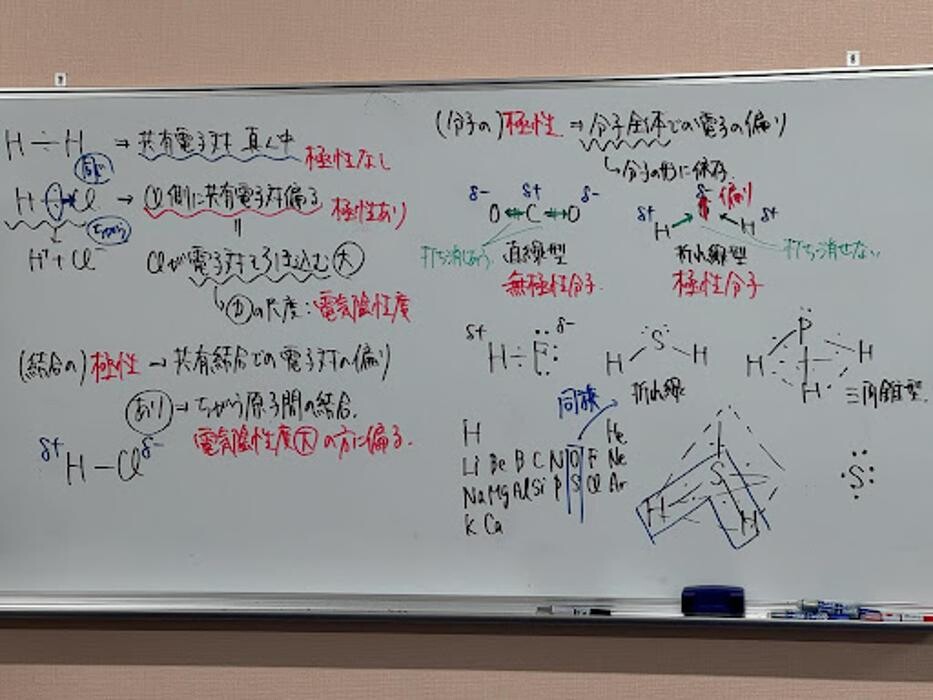 H ÷ H ⇒ 共有電子対 真ん中 極性なし
同じ
H Cl → Cl側に共有電子対偏る 極性あり
ちがう
H⁺ + Cl⁻ Clが電子対をひき込む力大
力の尺度：電気陰性度
(結合の)極性 → 共有結合での電子対の偏り
あり ⇒ ちがう原子間の結合.
電気陰性度大の方に偏る.
δ+ H − Cl δ−
(分子の)極性 ⇒ 分子全体での電子の偏り
分子の形に依存.
δ− δ+ δ−
O C O
打ち消しあう 直線型
無極性分子
δ− 偏り
δ+ H H δ+
折れ線型 打ち消せない
極性分子
δ+ H F δ−
H S H
折れ線
P
H H H
三角錐型
同族
H He
Li Be B C N O F Ne
Na Mg Al Si P S Cl Ar
K Ca
S
H H
S